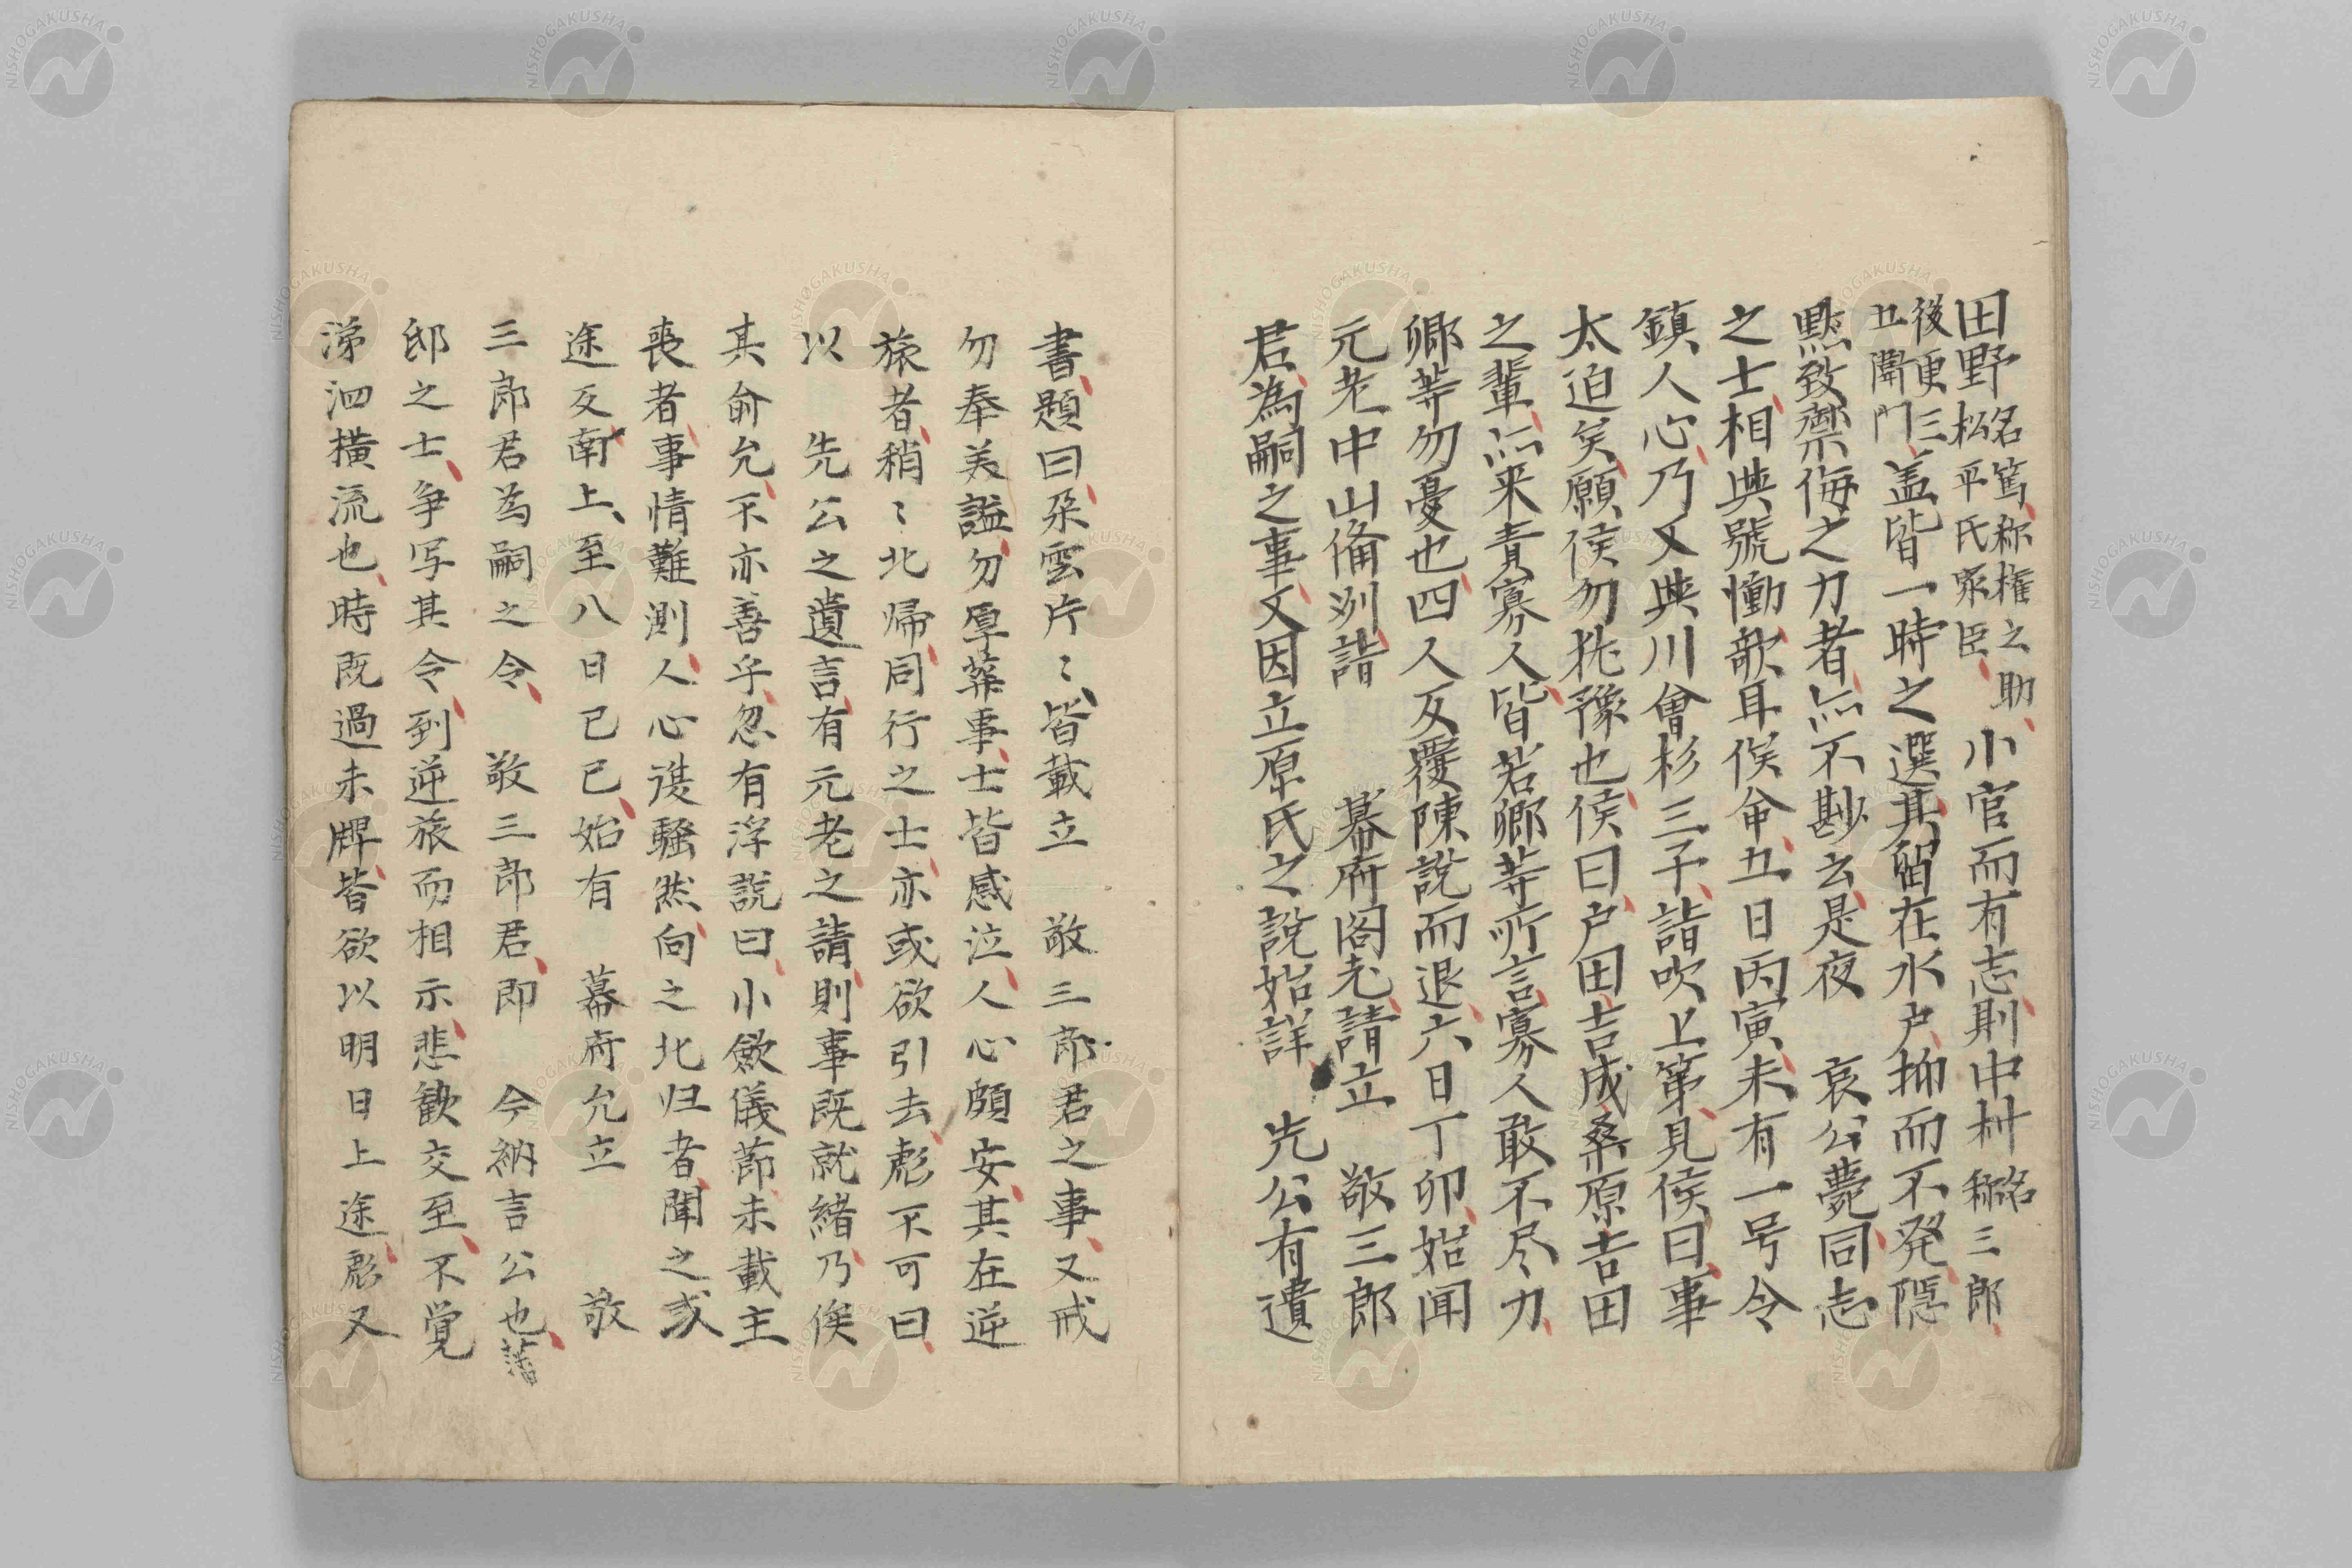 田野名篤、称権之助、松平氏家臣、小官而有志、則中村名称三郎、
後更三五衛門、蓋皆一時之選、其留在水戸、抑而不発、隠
黙致禦侮之力者、亦不尠云、是夜　哀公薨、同志
之士、相共號慟歔耳、俟命、五日丙寅、未有一号令
鎮人心、乃又与川會杉三子、詣吹上第、見侯曰、事
太迫矣、願侯勿猶豫也、侯曰、戸田吉成桑原吉田
之輩、亦来責寡人、皆若卿等所言、寡人敢不尽力、
卿等勿憂也、四人反覆陳說而退、六日丁卯、始聞
元老中山備刕、詣　幕府閣老、請立　敬三郎
君、為嗣之事、又因立原氏之説始詳、　先公有遺
書、題曰、朶雲片〻、皆載立　敬三郎君之事、又戒
勿奉美謚、勿厚葬事、士皆感泣、人心頗安、其在逆
旅者、稍〻北帰、同行之士、亦或欲引去、彪不可曰、
以　先公之遺言、有元老之請、則事既就緒、乃俟
其俞允、不亦善乎、忽有浮説曰、小歛儀節未載主
喪者、事情難測、人心復騒然、向之北归者、聞之或
途反南上、至八日己巳、始有　幕府允立　敬
三郎君為嗣之令、　敬三郎君、即　今納言公也、藩
邸之士、争写其令、到逆旅而相示、悲歓交至、不覚
涕泗横流也、時既過未牌、皆欲以明日上途、彪又
NISHOGAKUSHA